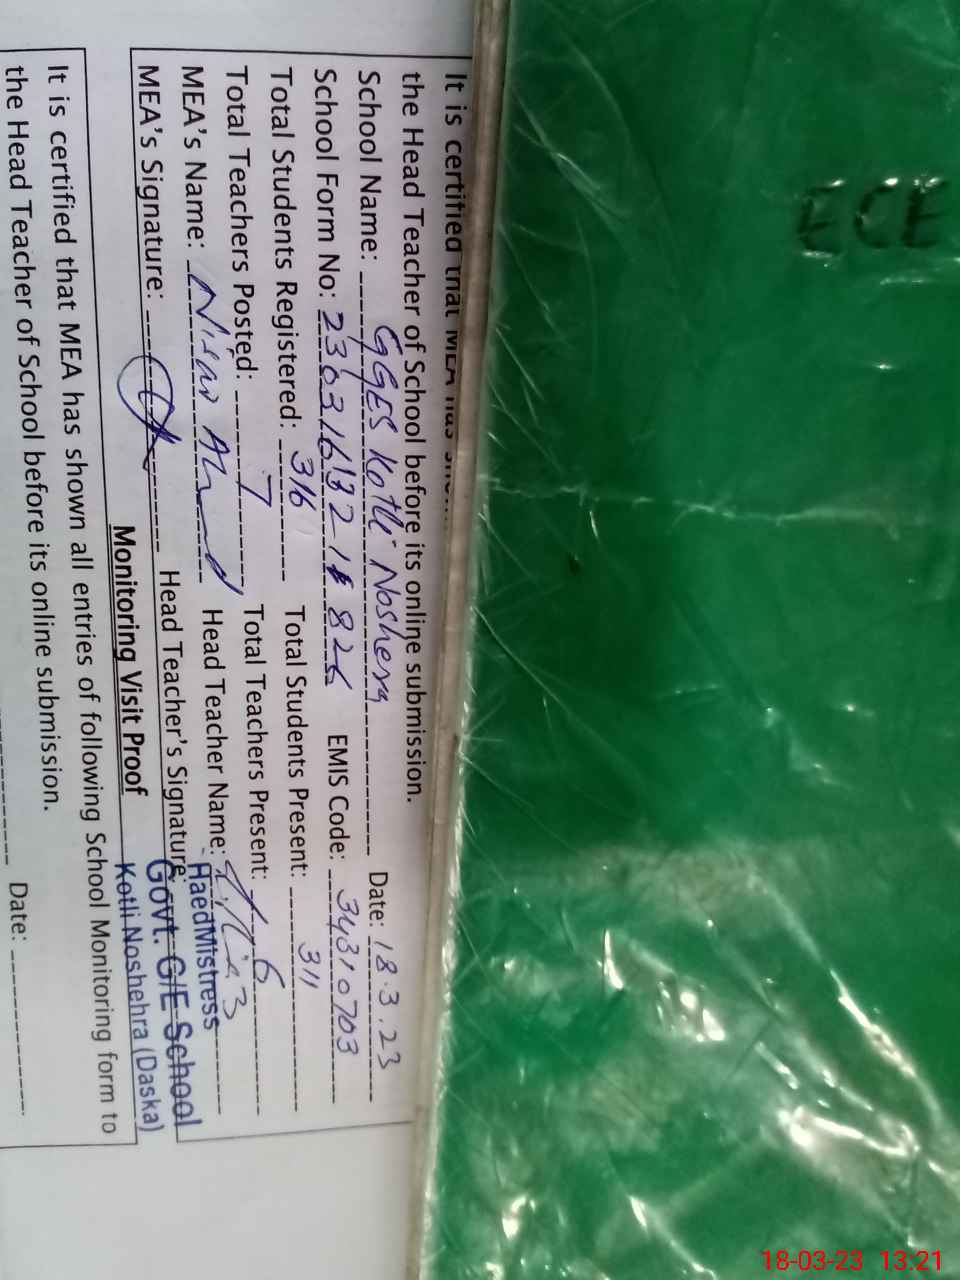 ECE
It is certified that MEA has
the Head Teacher of School before its online submission.
School Name: GGES Kotli Noshera Date: 18.3.23
School Form No: EMIS Code: 34310703
Total Students Registered: 316 Total Students Present: 311
Total Teachers Posted: 7 Total Teachers Present: 6
MEA's Name: Nisar Ahmad Head Teacher Name:
MEA's Signature: Head Teacher's Signature:
HaedMistress
Govt. G/E School
Kotli Noshehra (Daska)
Monitoring Visit Proof
It is certified that MEA has shown all entries of following School Monitoring form to
the Head Teacher of School before its online submission.
Date:
18-03-23 13:21